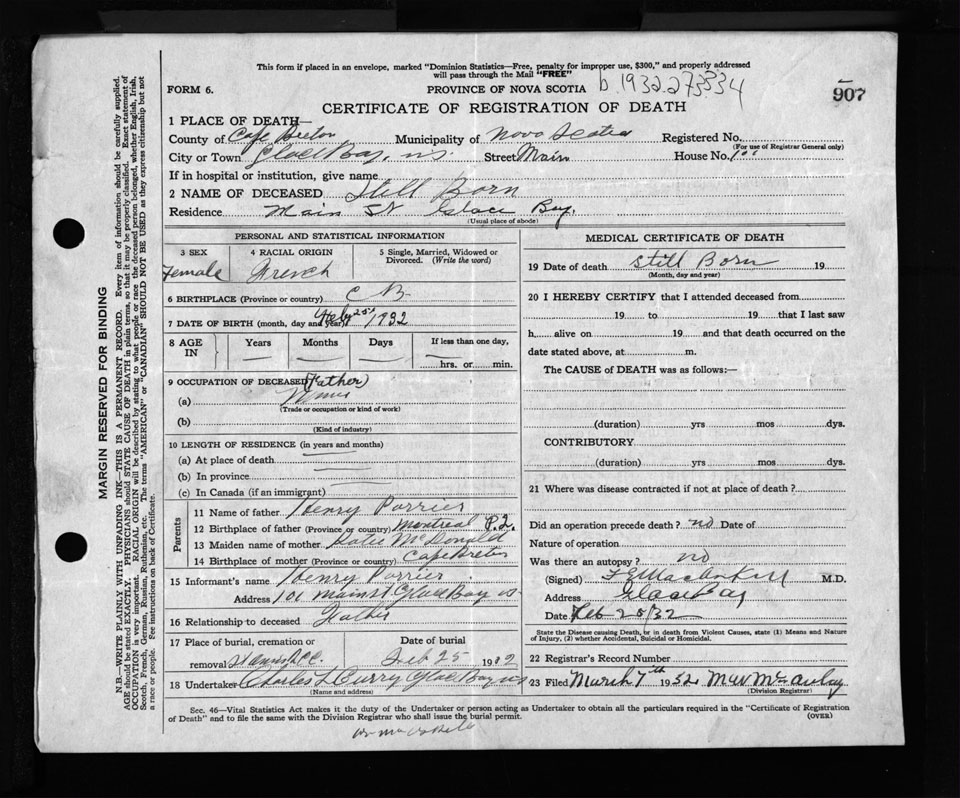 This form if placed in an envelope, marked "Dominion Statistics—Free, penalty for improper use, $300," and properly addressed
will pass through the Mail "FREE"
FORM 6.
PROVINCE OF NOVA SCOTIA
b 1932.273334
907
CERTIFICATE OF REGISTRATION OF DEATH
1 PLACE OF DEATH—
County of Cape Breton Municipality of Nova Scotia Registered No.
(For use of Registrar General only)
City or Town Glace Bay, NS. Street Main House No. 100
If in hospital or institution, give name
2 NAME OF DECEASED Still Born
Residence Main St Glace Bay.
(Usual place of abode)
PERSONAL AND STATISTICAL INFORMATION
3 SEX 4 RACIAL ORIGIN 5 Single, Married, Widowed or
Divorced. (Write the word)
Female French
6 BIRTHPLACE (Province or country) C B.
7 DATE OF BIRTH (month, day and year) Feby 25 1932
8 AGE IN Years Months Days If less than one day,
hrs. or min.
9 OCCUPATION OF DECEASED (Father)
(a) Miner
(Trade or occupation or kind of work)
(b)
(Kind of industry)
10 LENGTH OF RESIDENCE (in years and months)
(a) At place of death
(b) In province
(c) In Canada (if an immigrant)
Parents
11 Name of father Henry Porrier
12 Birthplace of father (Province or country) Montreal P.Q.
13 Maiden name of mother Katie McDonald
14 Birthplace of mother (Province or country) Cape Breton
15 Informant's name Henry Porrier
Address 101 Main St Glace Bay NS
16 Relationship to deceased Father
17 Place of burial, cremation or Date of burial
removal Feb 25 1932
18 Undertaker Charles L Curry Glace Bay NS
(Name and address)
MEDICAL CERTIFICATE OF DEATH
19 Date of death Still Born 19
(Month, day and year)
20 I HEREBY CERTIFY that I attended deceased from
19 to 19 that I last saw
h alive on 19 and that death occurred on the
date stated above, at m.
The CAUSE of DEATH was as follows:—
(duration) yrs mos dys.
CONTRIBUTORY
(duration) yrs mos dys.
21 Where was disease contracted if not at place of death ?
Did an operation precede death ? no Date of
Nature of operation
Was there an autopsy ? no
(Signed) M.D.
Address Glace Bay
Date Feb 25/32
State the Disease causing Death, or in death from Violent Causes, state (1) Means and Nature
of Injury, (2) whether Accidental, Suicidal or Homicidal.
22 Registrar's Record Number
23 Filed March 7th 1932 Max McAulay
(Division Registrar)
Sec. 46—Vital Statistics Act makes it the duty of the Undertaker or person acting as Undertaker to obtain all the particulars required in the "Certificate of Registration
of Death" and to file the same with the Division Registrar who shall issue the burial permit.
(OVER)
MARGIN RESERVED FOR BINDING
N.B.—WRITE PLAINLY WITH UNFADING INK—THIS IS A PERMANENT RECORD. Every item of information should be carefully supplied.
AGE should be stated EXACTLY. PHYSICIANS should STATE CAUSE OF DEATH in plain terms, so that it may be properly classified. Exact statement of
OCCUPATION is very important. RACIAL ORIGIN will be described by stating to what people or race the deceased person belonged, whether English, Irish,
Scotch, French, German, Russian, Ruthenian, etc. The terms "AMERICAN" or "CANADIAN" SHOULD NOT BE USED as they express citizenship but not
a race or people. See instructions on back of Certificate.